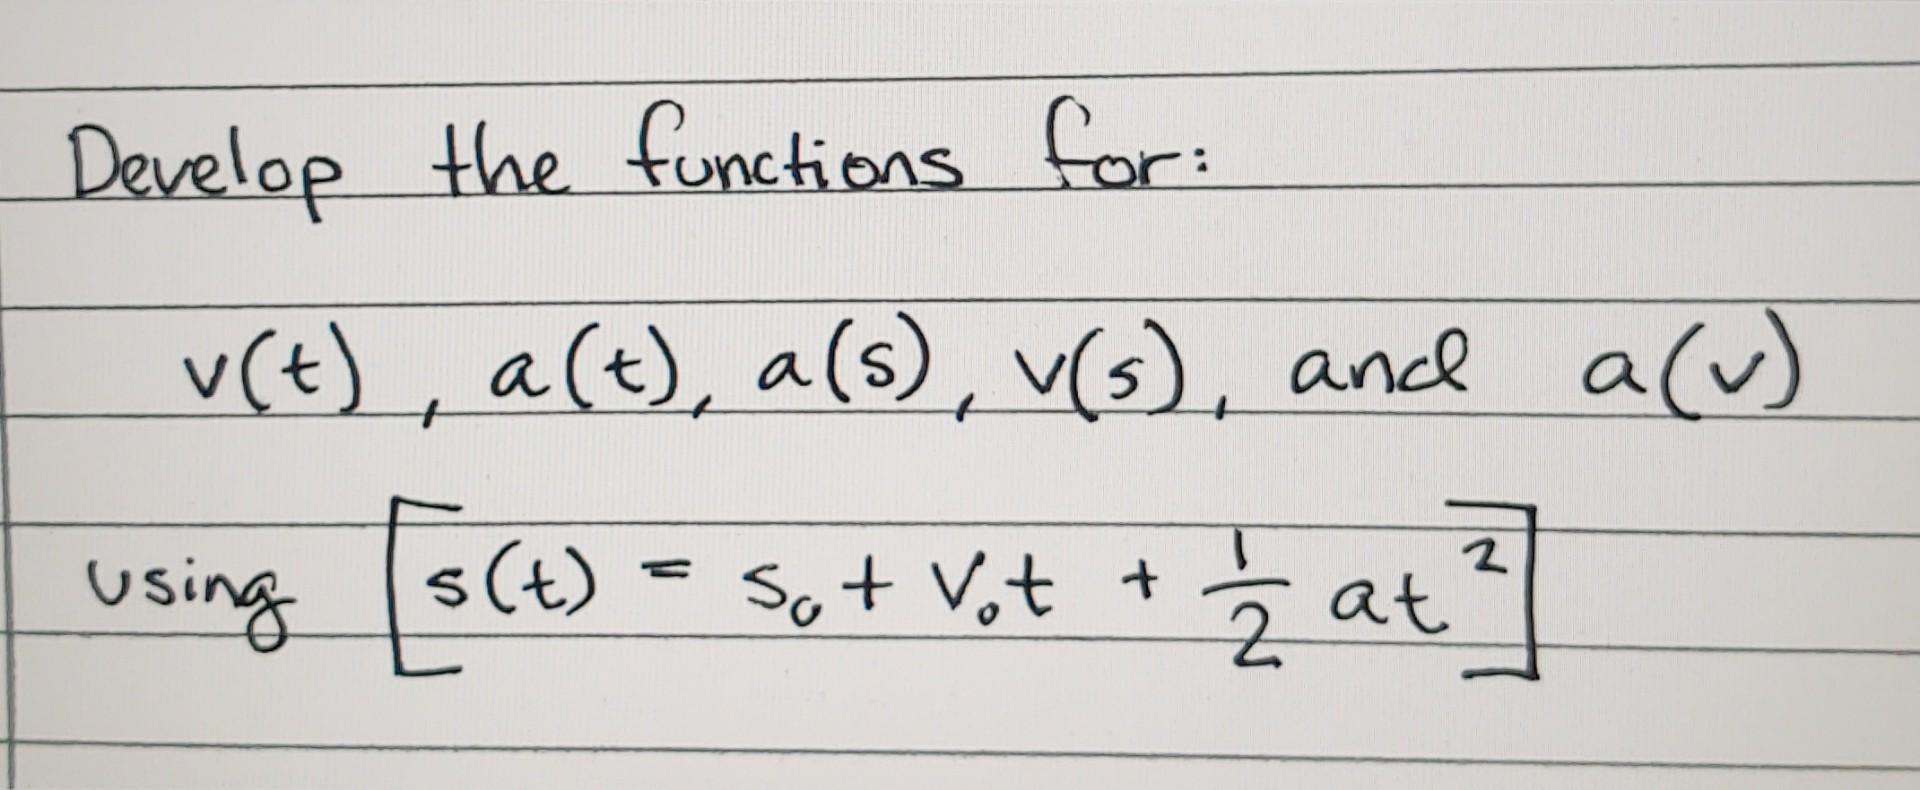 Develop the functions for:
v(t), a(t), a(s), v(s), and a(v)
using [s(t) = s₀ + v₀t + 1/2 at²]